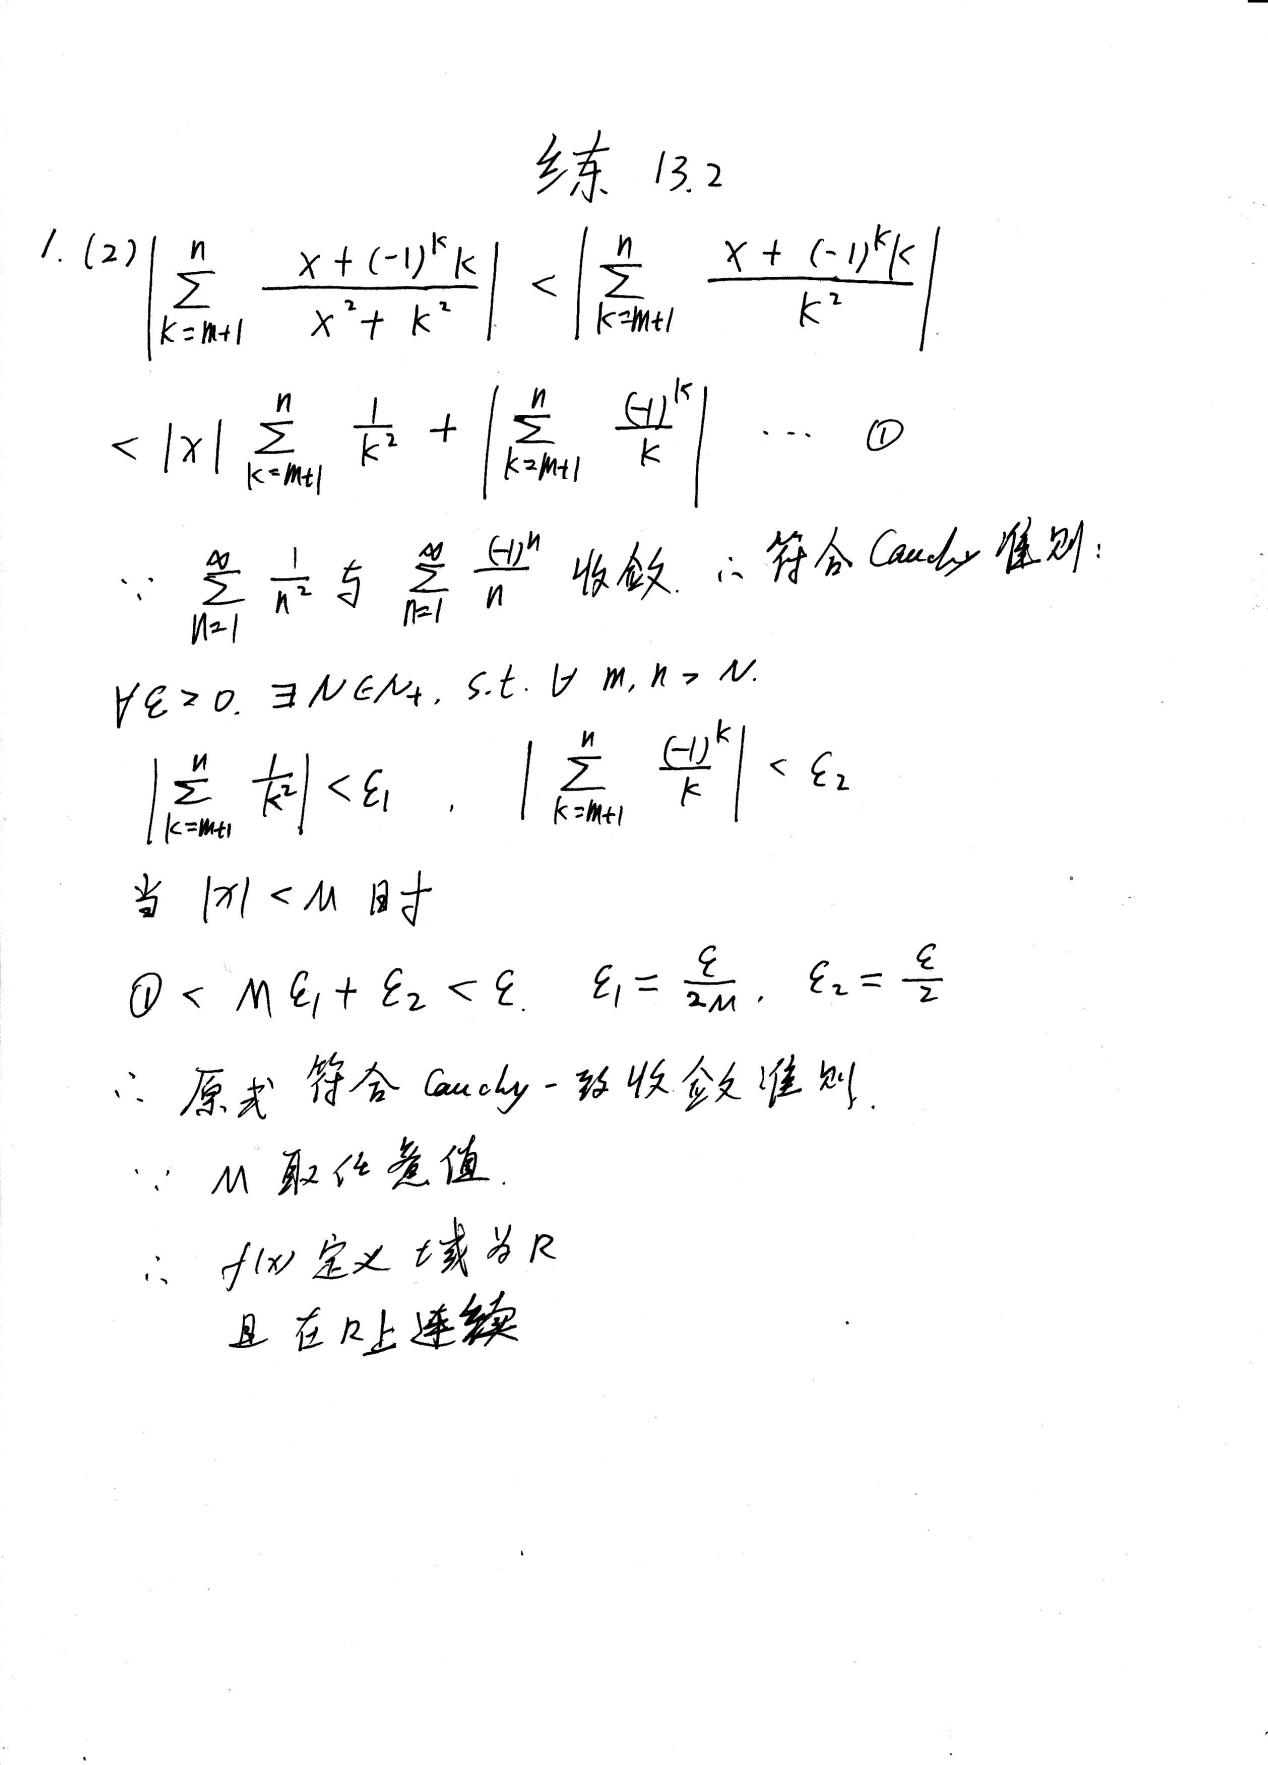 练 13.2
1. (2) |∑_{k=m+1}^{n} (x + (-1)^k k)/(x² + k²)| < |∑_{k=m+1}^{n} (x + (-1)^k k)/k²|
< |x| ∑_{k=m+1}^{n} 1/k² + |∑_{k=m+1}^{n} (-1)^k/k| ... ①
∵ ∑_{n=1}^{∞} 1/n² 与 ∑_{n=1}^{∞} (-1)^n/n 收敛. ∴ 符合 Cauchy 准则:
∀ε>0. ∃N∈N₊, s.t. ∀ m, n > N.
|∑_{k=m+1}^{n} 1/k²| < ε₁ , |∑_{k=m+1}^{n} (-1)^k/k| < ε₂
当 |x| < M 时
① < Mε₁ + ε₂ < ε. ε₁ = ε/2M, ε₂ = ε/2
∴ 原式 符合 Cauchy 一致收敛准则.
∵ M 取任意值.
∴ f(x) 定义域为 R
且在R上连续